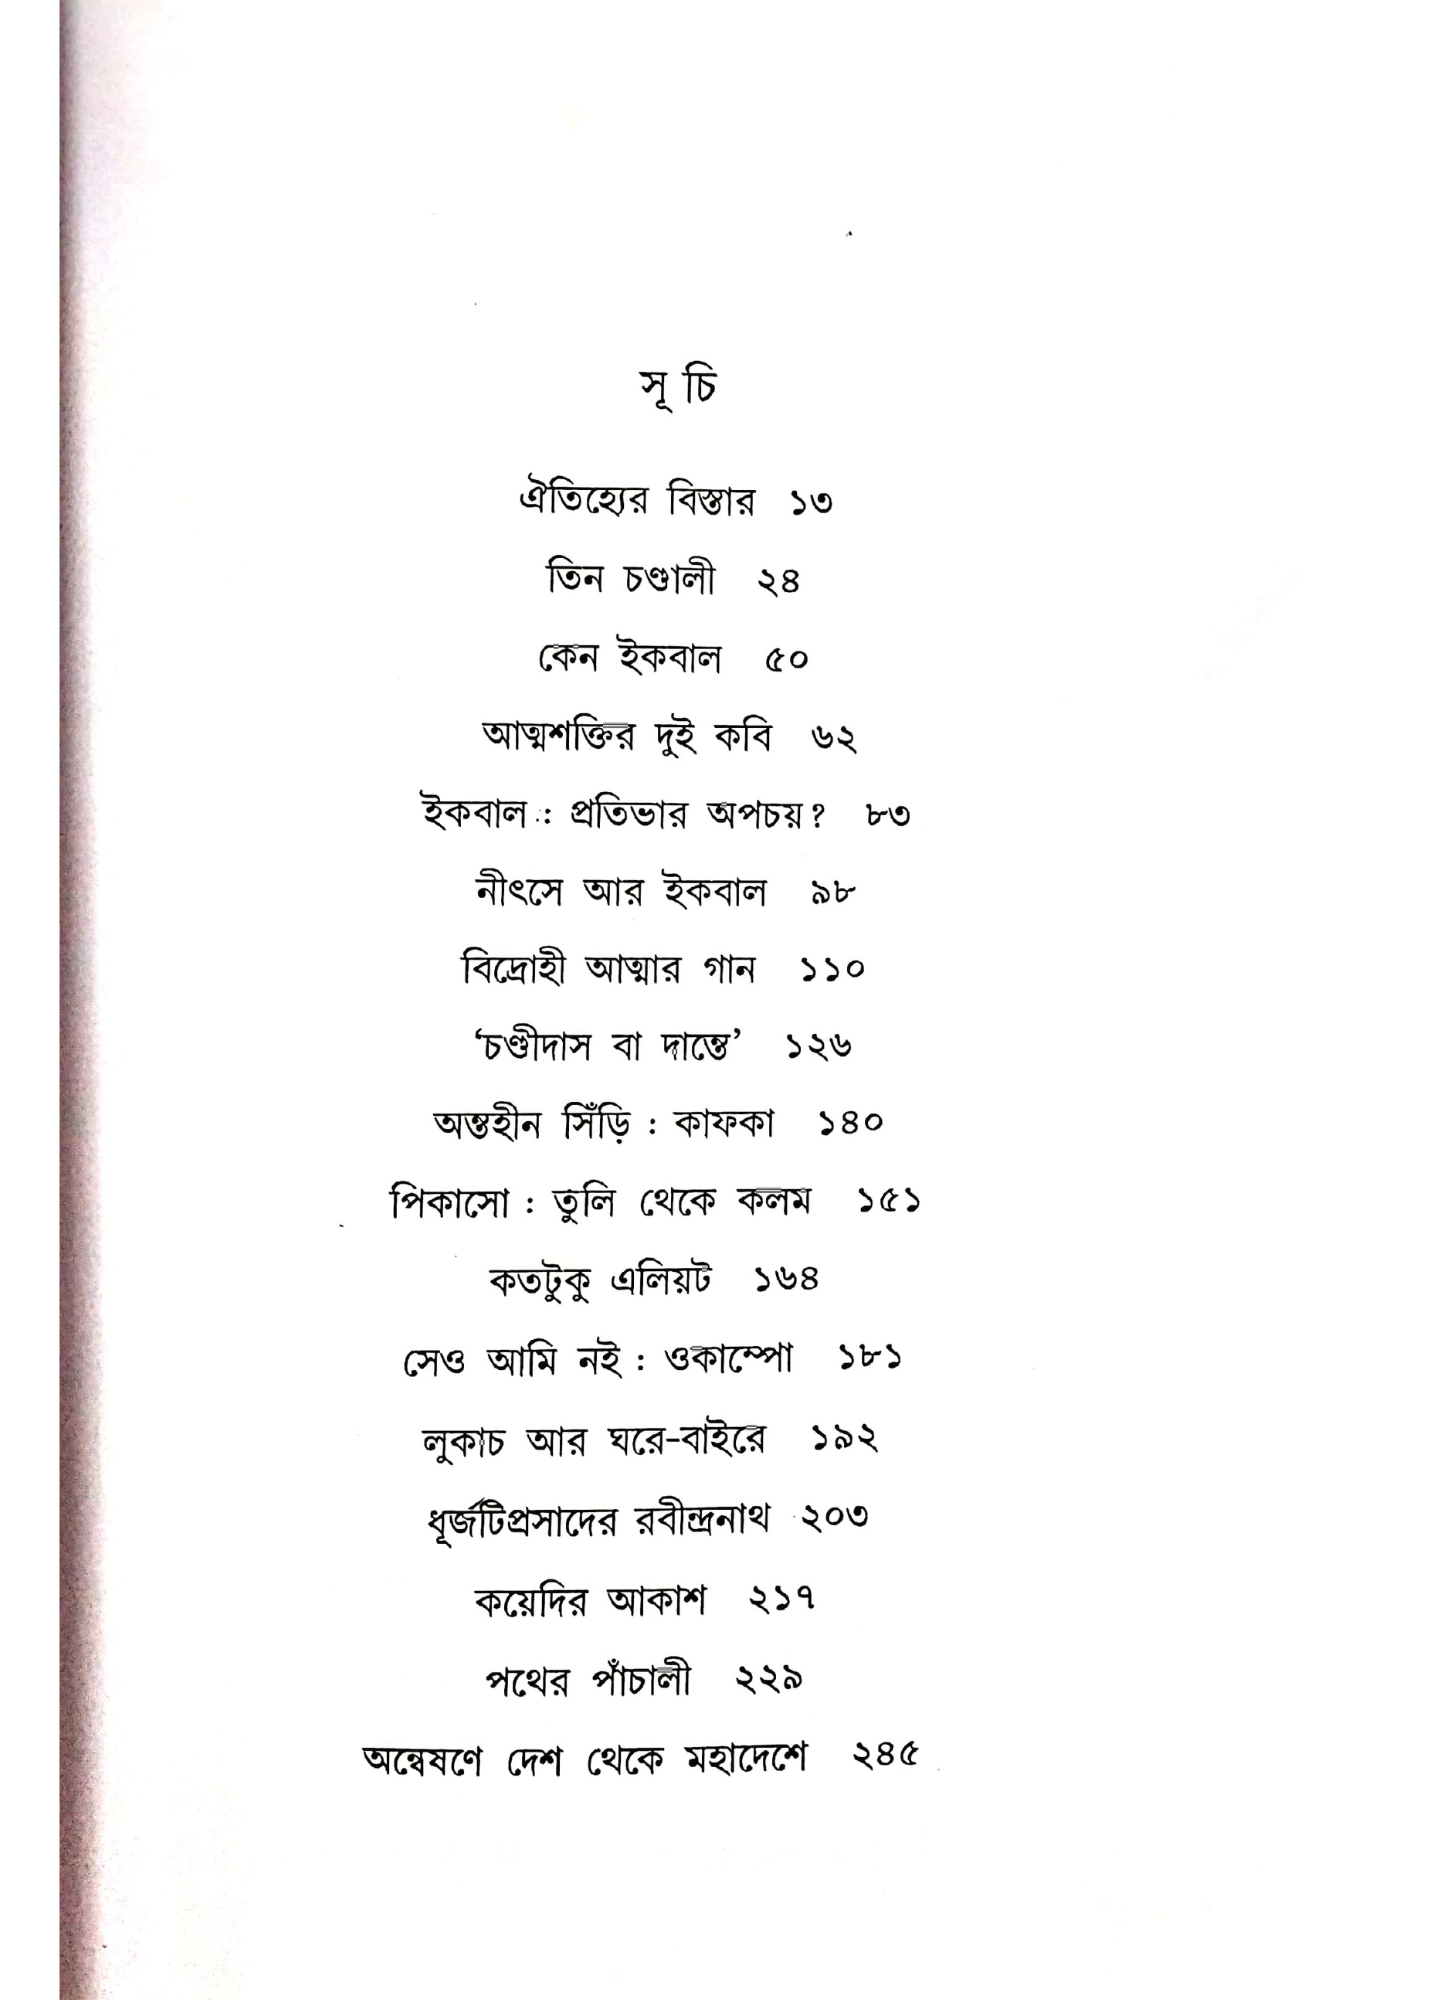 সূ চি
ঐতিহ্যের বিস্তার ১৩
তিন চণ্ডালী ২৪
কেন ইকবাল ৫০
আত্মশক্তির দুই কবি ৬২
ইকবাল : প্রতিভার অপচয়? ৮৩
নীৎসে আর ইকবাল ৯৮
বিদ্রোহী আত্মার গান ১১০
‘চণ্ডীদাস বা দান্তে’ ১২৬
অন্তহীন সিঁড়ি : কাফকা ১৪০
পিকাসো : তুলি থেকে কলম ১৫১
কতটুকু এলিয়ট ১৬৪
সেও আমি নই : ওকাম্পো ১৮১
লুকাচ আর ঘরে-বাইরে ১৯২
ধূর্জটিপ্রসাদের রবীন্দ্রনাথ ২০৩
কয়েদির আকাশ ২১৭
পথের পাঁচালী ২২৯
অন্বেষণে দেশ থেকে মহাদেশে ২৪৫